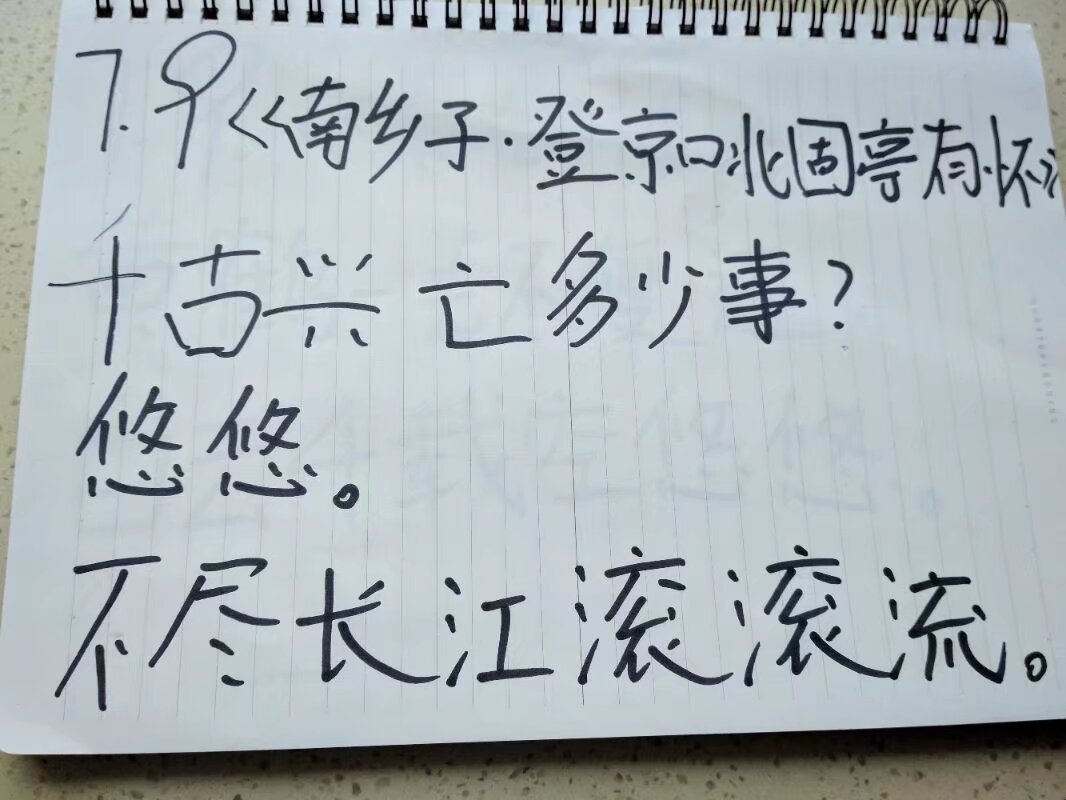 7.9《南乡子·登京口北固亭有怀》
千古兴亡多少事？
悠悠。
不尽长江滚滚流。